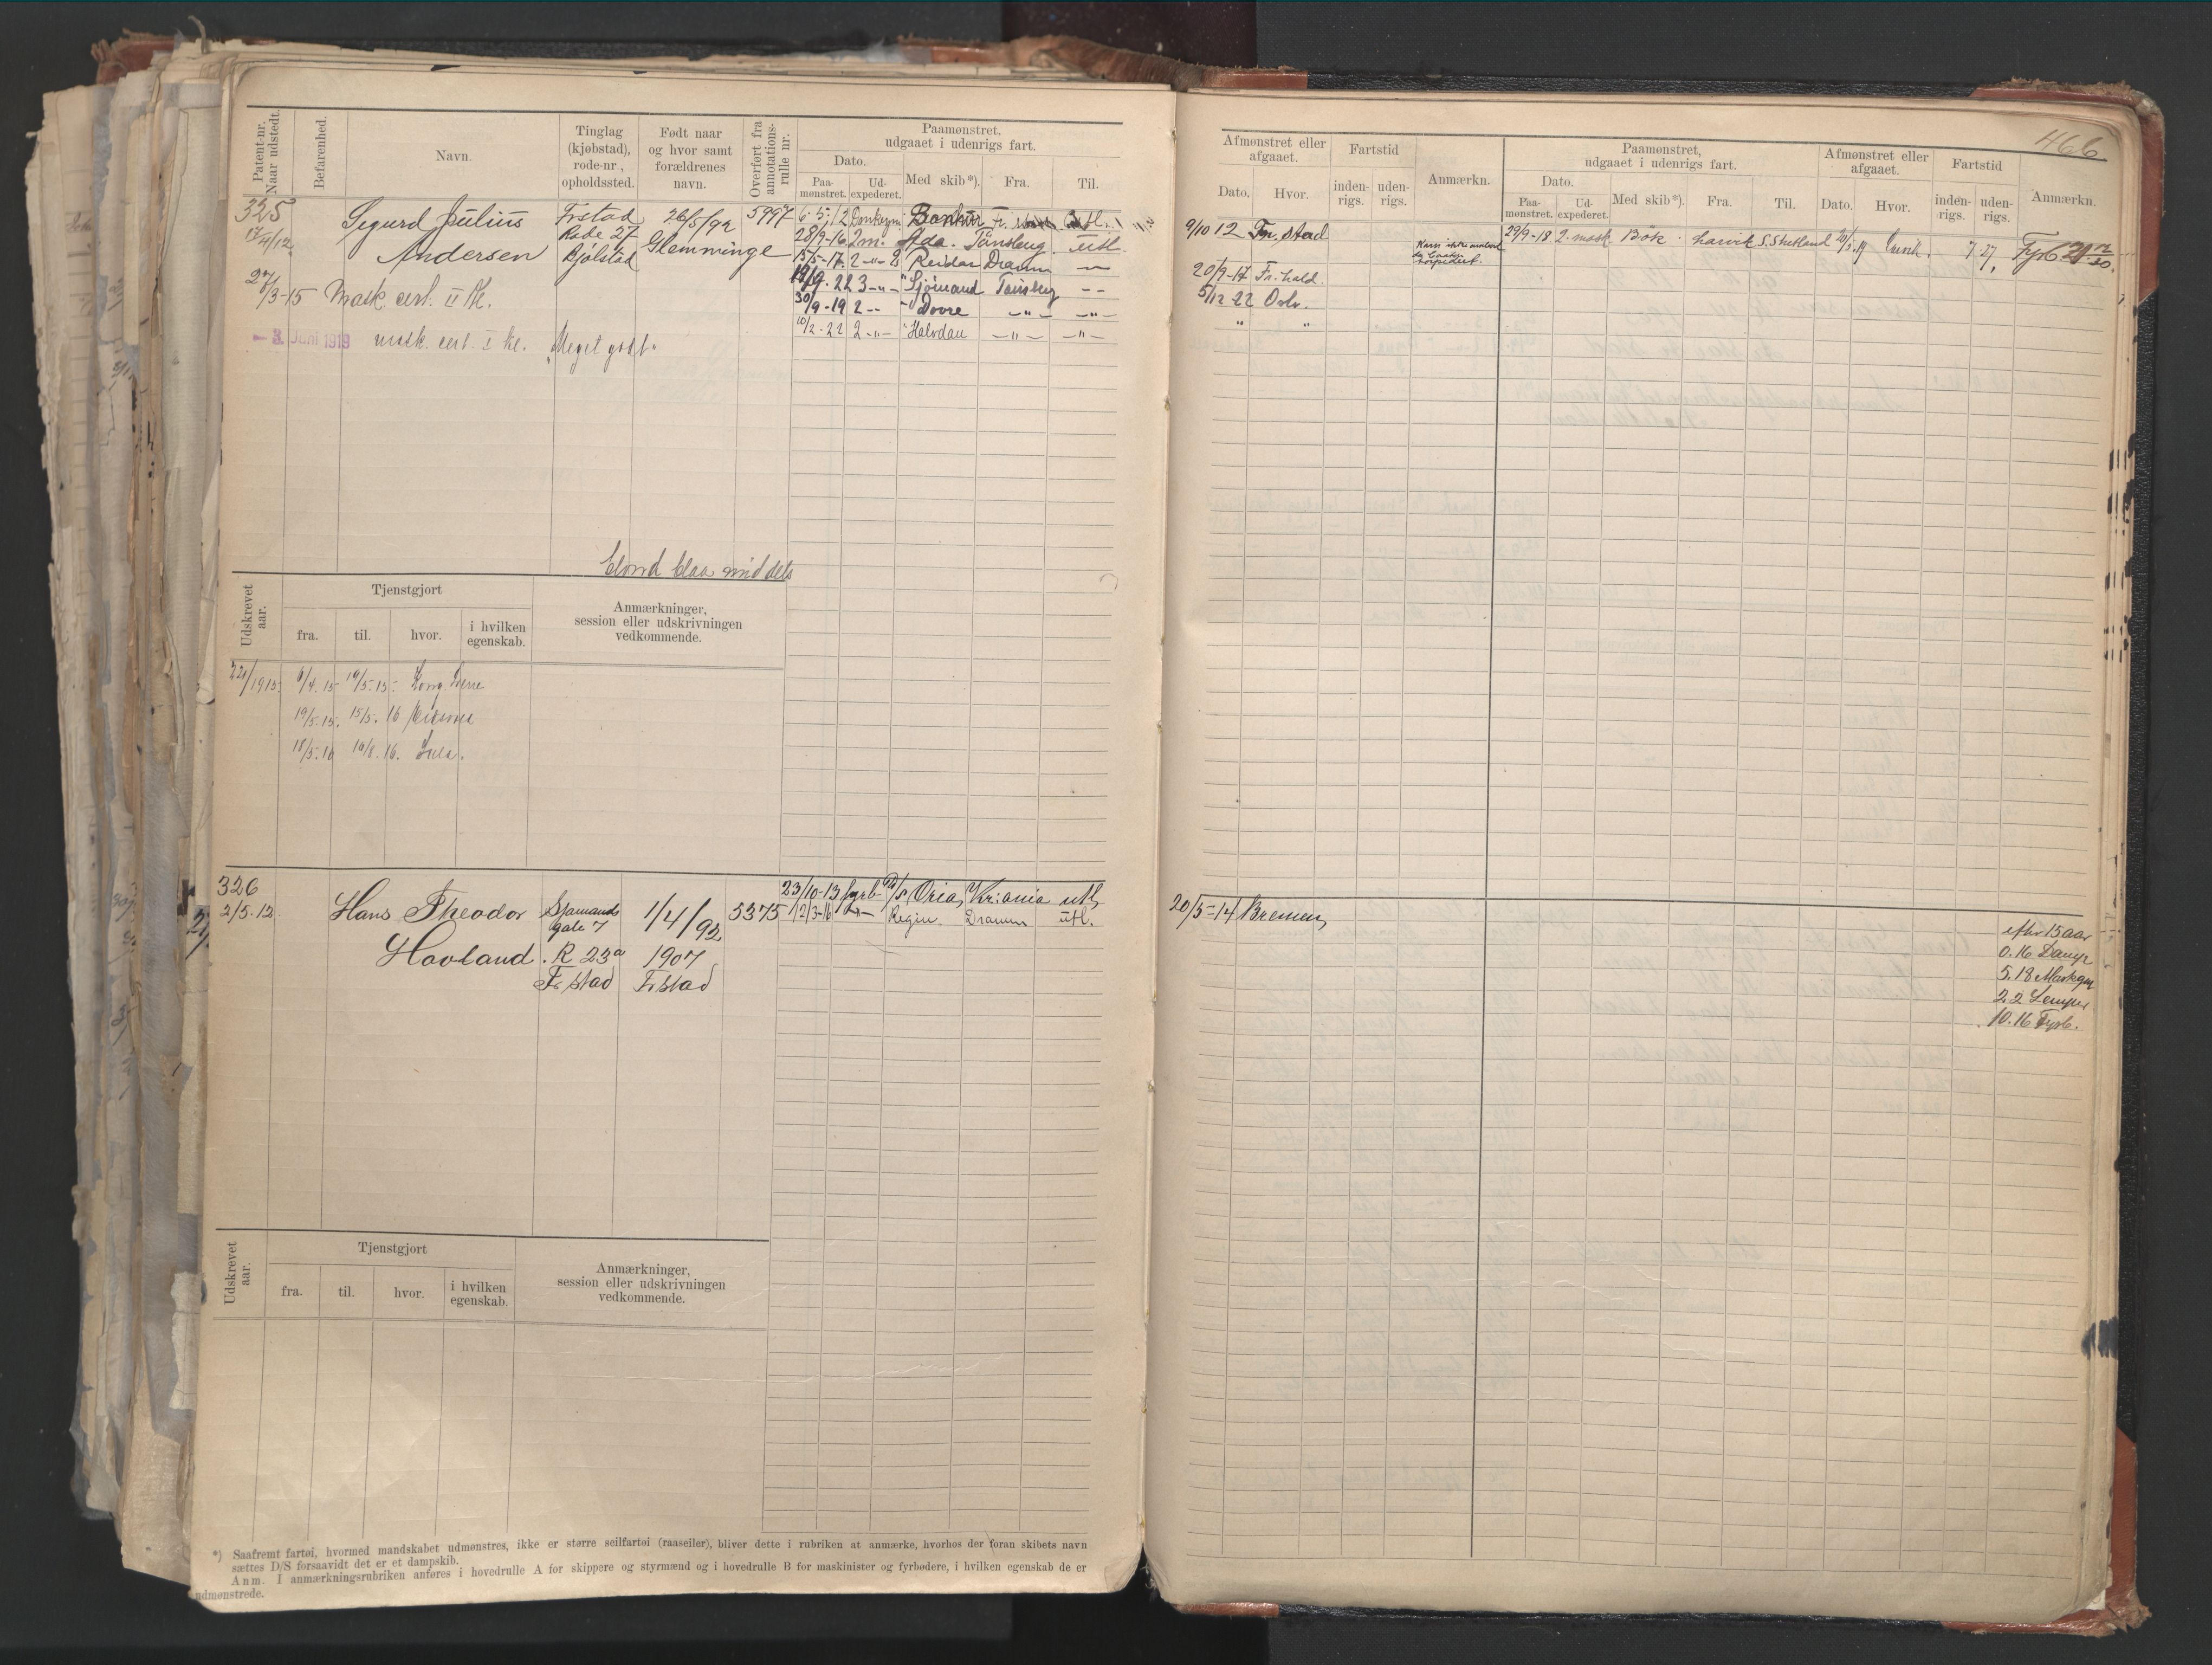 Patent-nr. Naar udstedt.
Befarenhed.
Navn.
Tinglag (kjøbstad), rode-nr., opholdssted.
Født naar og hvor samt forældrenes navn.
Overført fra annotations-rulle nr.
Paamønstret, udgaaet i udenrigs fart.
Dato.
Paa-mønstret.
Ud-expederet.
Med skib*).
Fra.
Til.
325
17/4/12
Sigurd Julius
Andersen
Frstad
Rode 27
Bjølstad
26/5/92
Glemminge
5997
6.5.12 Donkeym.
28/9-16 2 m. Ada. Tønsberg utl.
15/5-17. 2 -"- Reidar Dramm -"-
22 3 -"- Sjømand Tønsberg -"-
30/9-19 2 -"- Dovre -"- -"-
10/2-22 2 -"- Halvdan -"- -"-
27/3-15 Mask. cert. II Kl.
- 3. Juni 1919 mask. cert. I kl. "Meget godt"
blond blaa middels
Udskrevet aar.
Tjenstgjort
fra.
til.
hvor.
i hvilken egenskab.
Anmærkninger, session eller udskrivningen vedkommende.
/1915. 6/4.15 19/5.15.
19/5.15. 15/5.16
18/5.16 16/8.16.
326
2/5.12
Hans Theodor
Hovland
Sjømands
gate 7
R 23a
Fr.stad
1/4/92
1907
Frstad
5375
23/10-13 fyrb D/s Oria, Kr:ania utl,
12/3-16 -"- Regin. Dramm utl.
Udskrevet aar.
Tjenstgjort
fra.
til.
hvor.
i hvilken egenskab.
Anmærkninger, session eller udskrivningen vedkommende.
*) Saafremt fartøi, hvormed mandskabet udmønstres, ikke er større seilfartøi (raaseiler), bliver dette i rubriken at anmærke, hvorhos der foran skibets navn
sættes D/S forsaavidt det er et dampskib.
Anm. I anmærkningsrubriken anføres i hovedrulle A for skippere og styrmænd og i hovedrulle B for maskinister og fyrbødere, i hvilken egenskab de er
udmønstrede.
466
Afmønstret eller afgaaet.
Dato.
Hvor.
Fartstid
inden-rigs.
uden-rigs.
Anmærkn.
Paamønstret, udgaaet i udenrigs fart.
Dato.
Paa-mønstret.
Ud-expederet.
Med skib*).
Fra.
Til.
Afmønstret eller afgaaet.
Dato.
Hvor.
Fartstid
inden-rigs.
uden-rigs.
Anmærkn.
9/10 12 Fr.stad
29/9-18 2. mask Bök Larvik S. Shetland
7 27, Fyrb
20/9-17 Fr.hald.
5/12 22 Oslo.
" "
20/5-14 Bremen,
efter 15 aar
0.16
5.18
2.2
10.16 Fyrb.